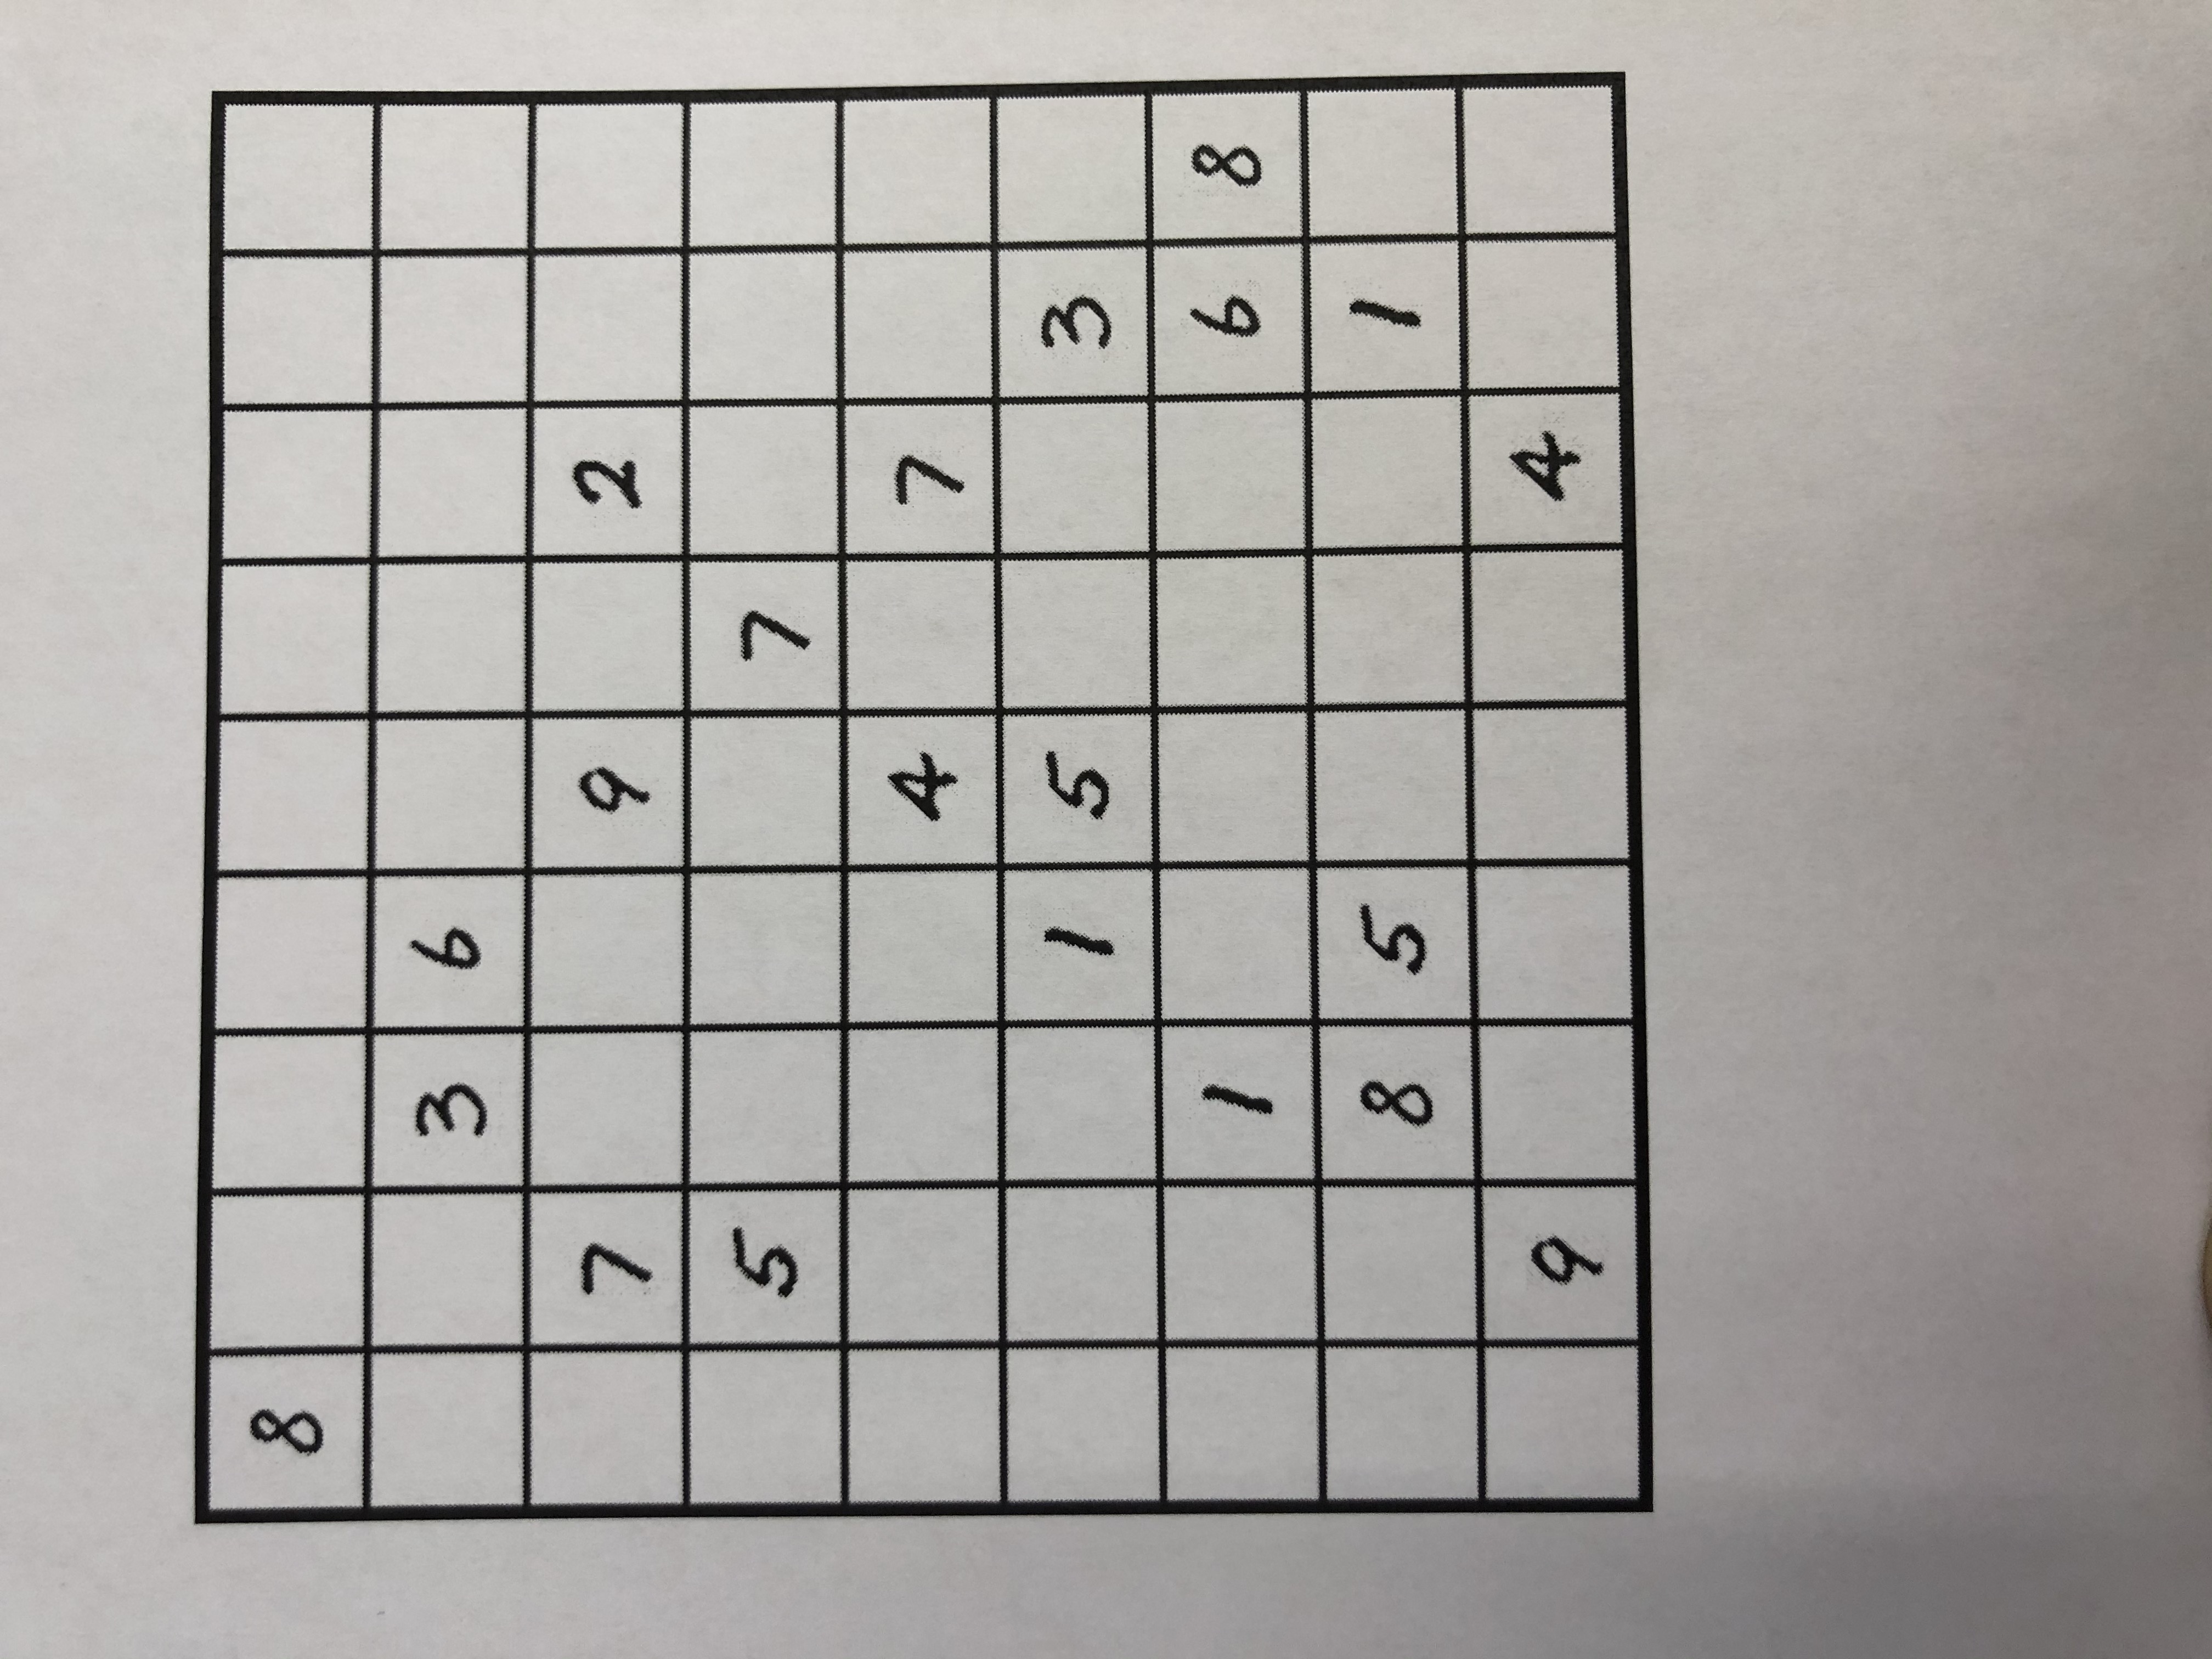 8
3 6
7 9 2
5 7
4 7
1 5 3
1 6 8
8 5 1
9 4